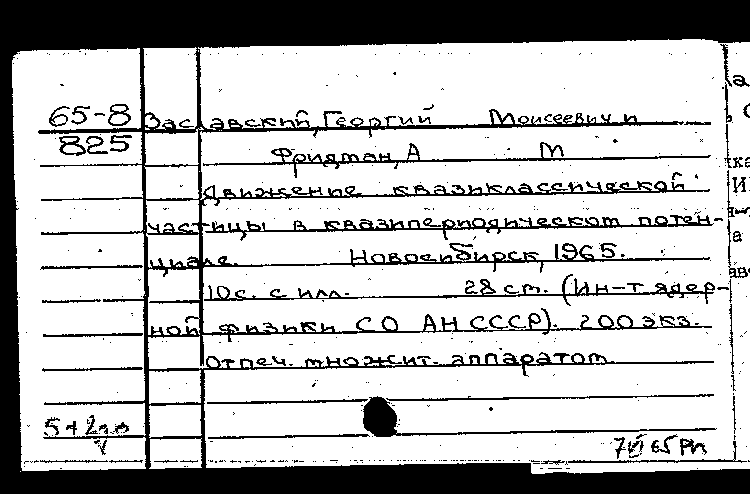 65-8 Заславский, Георгий Моисеевич и
825
Фридман, А М
Движение квазиклассической
частицы в квазипериодическом потен-
циале. Новосибирск, 1965.
10 с. с илл. 28 см. (Ин-т ядер-
ной физики СО АН СССР). 200 экз.
Отпеч. множит. аппаратом
7 VI 65